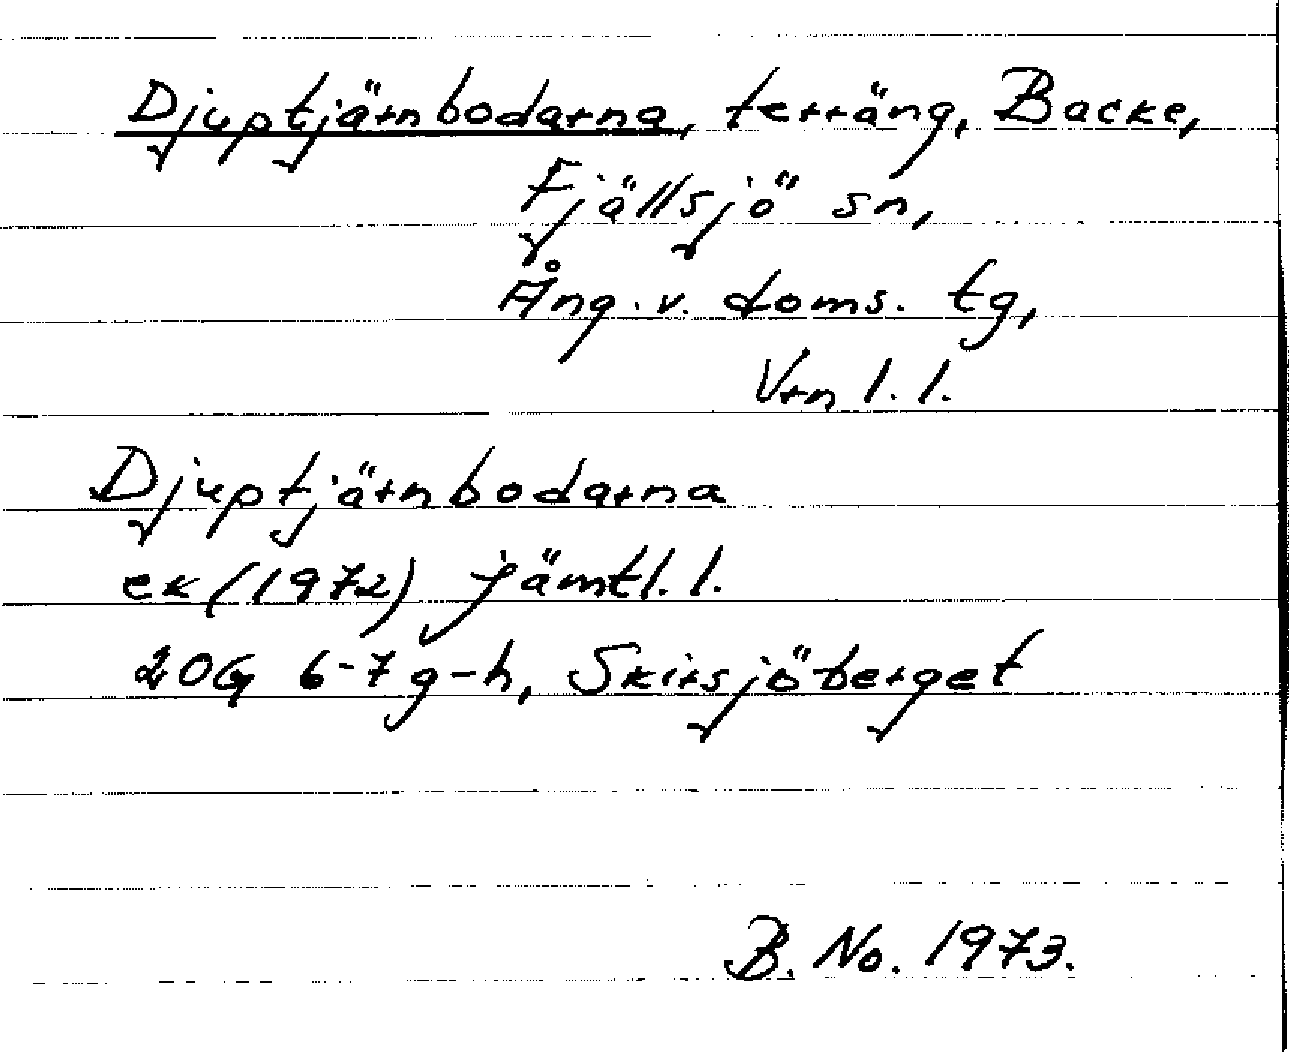 Djuptjärnbodarna, terräng, Backe,
Fjällsjö sn,
Ång. v. doms. tg,
Vrn l. l.
Djuptjärnbodarna
ek (1972) Jämtl. l.
20G 6-7 g-h, Skirsjöberget
B. No. 1973.